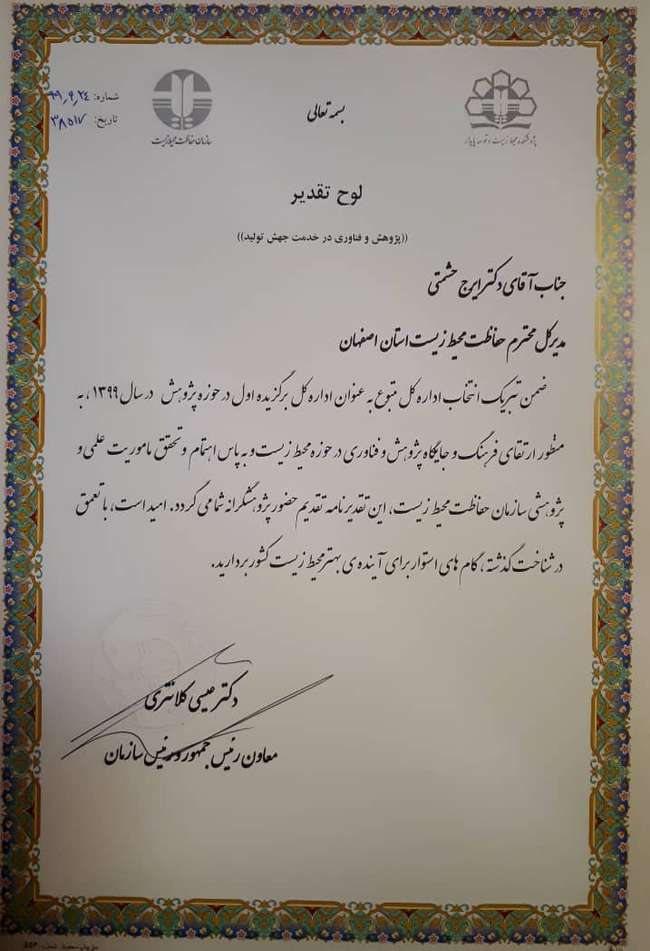 بسمه تعالی
پژوهشکده محیط زیست و توسعه پایدار
سازمان حفاظت محیط زیست
شماره: ۹۹,۹,۲۴
تاریخ: ۳۸۵۱۷
لوح تقدیر
((پژوهش و فناوری در خدمت جهش تولید))
جناب آقای دکتر ایرج حشمتی
مدیر کل محترم حفاظت محیط زیست استان اصفهان
ضمن تبریک انتخاب اداره کل متبوع به عنوان اداره کل برگزیده اول در حوزه پژوهش در سال ۱۳۹۹، به
منظور ارتقای فرهنگ و جایگاه پژوهش و فناوری در حوزه محیط زیست و به پاس اهتمام و تحقق ماموریت علمی و
پژوهشی سازمان حفاظت محیط زیست، این تقدیرنامه تقدیم حضور پژوهشگرانه شما می گردد. امید است، با تعمق
در شناخت گذشته، گام های استوار برای آینده ی بهتر محیط زیست کشور بردارید.
دکتر عیسی کلانتری
معاون رئیس جمهور و رئیس سازمان